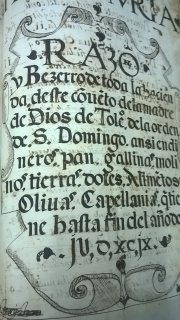 RAZŌ
y Bezerro de toda la hazien
da, deste cōuēto de la madre
de Dios de Tolē. de la orden
de S. Domingo, ansi en di
neros, pan, gallinas, moli
nos, tierras, dotes, Alimētos
Oliuas, Capellanias, q̄ tie
ne hasta fin del año de
JU, D, XC, IX.